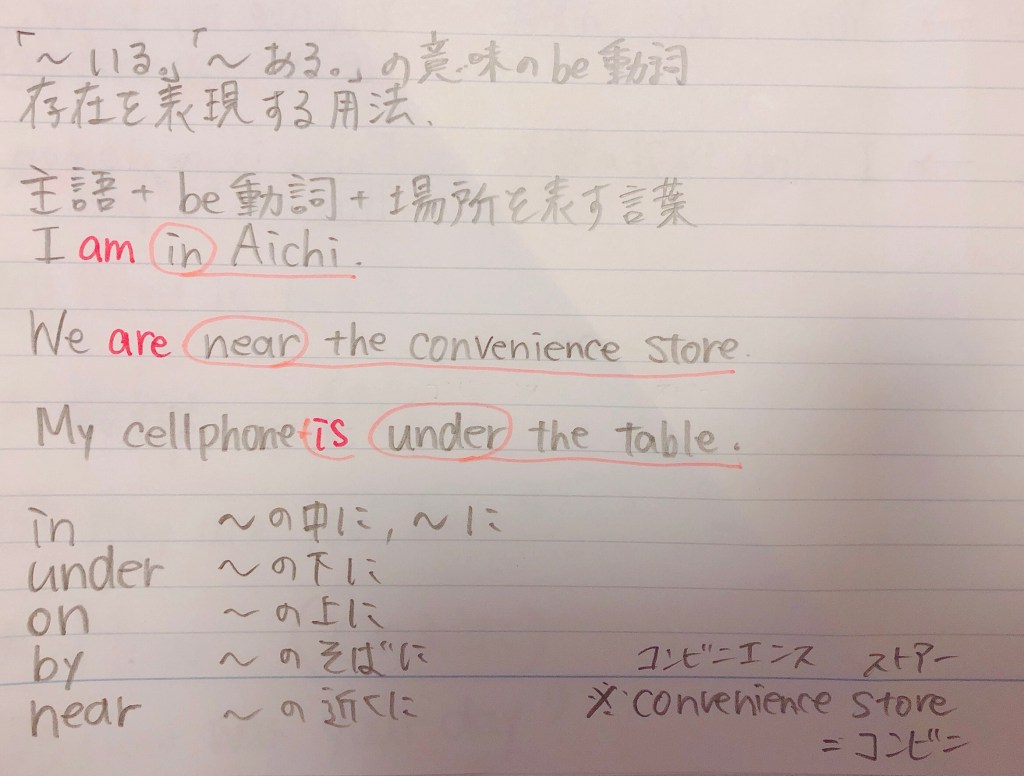 「～いる。」「～ある。」の意味のbe動詞
存在を表現する用法.
主語 + be動詞 + 場所を表す言葉
I am in Aichi.
We are near the convenience store.
My cellphone is under the table.
in ～の中に, ～に
under ～の下に
on ～の上に
by ～のそばに
near ～の近くに
コンビニエンス ストアー
※ convenience store
= コンビニ